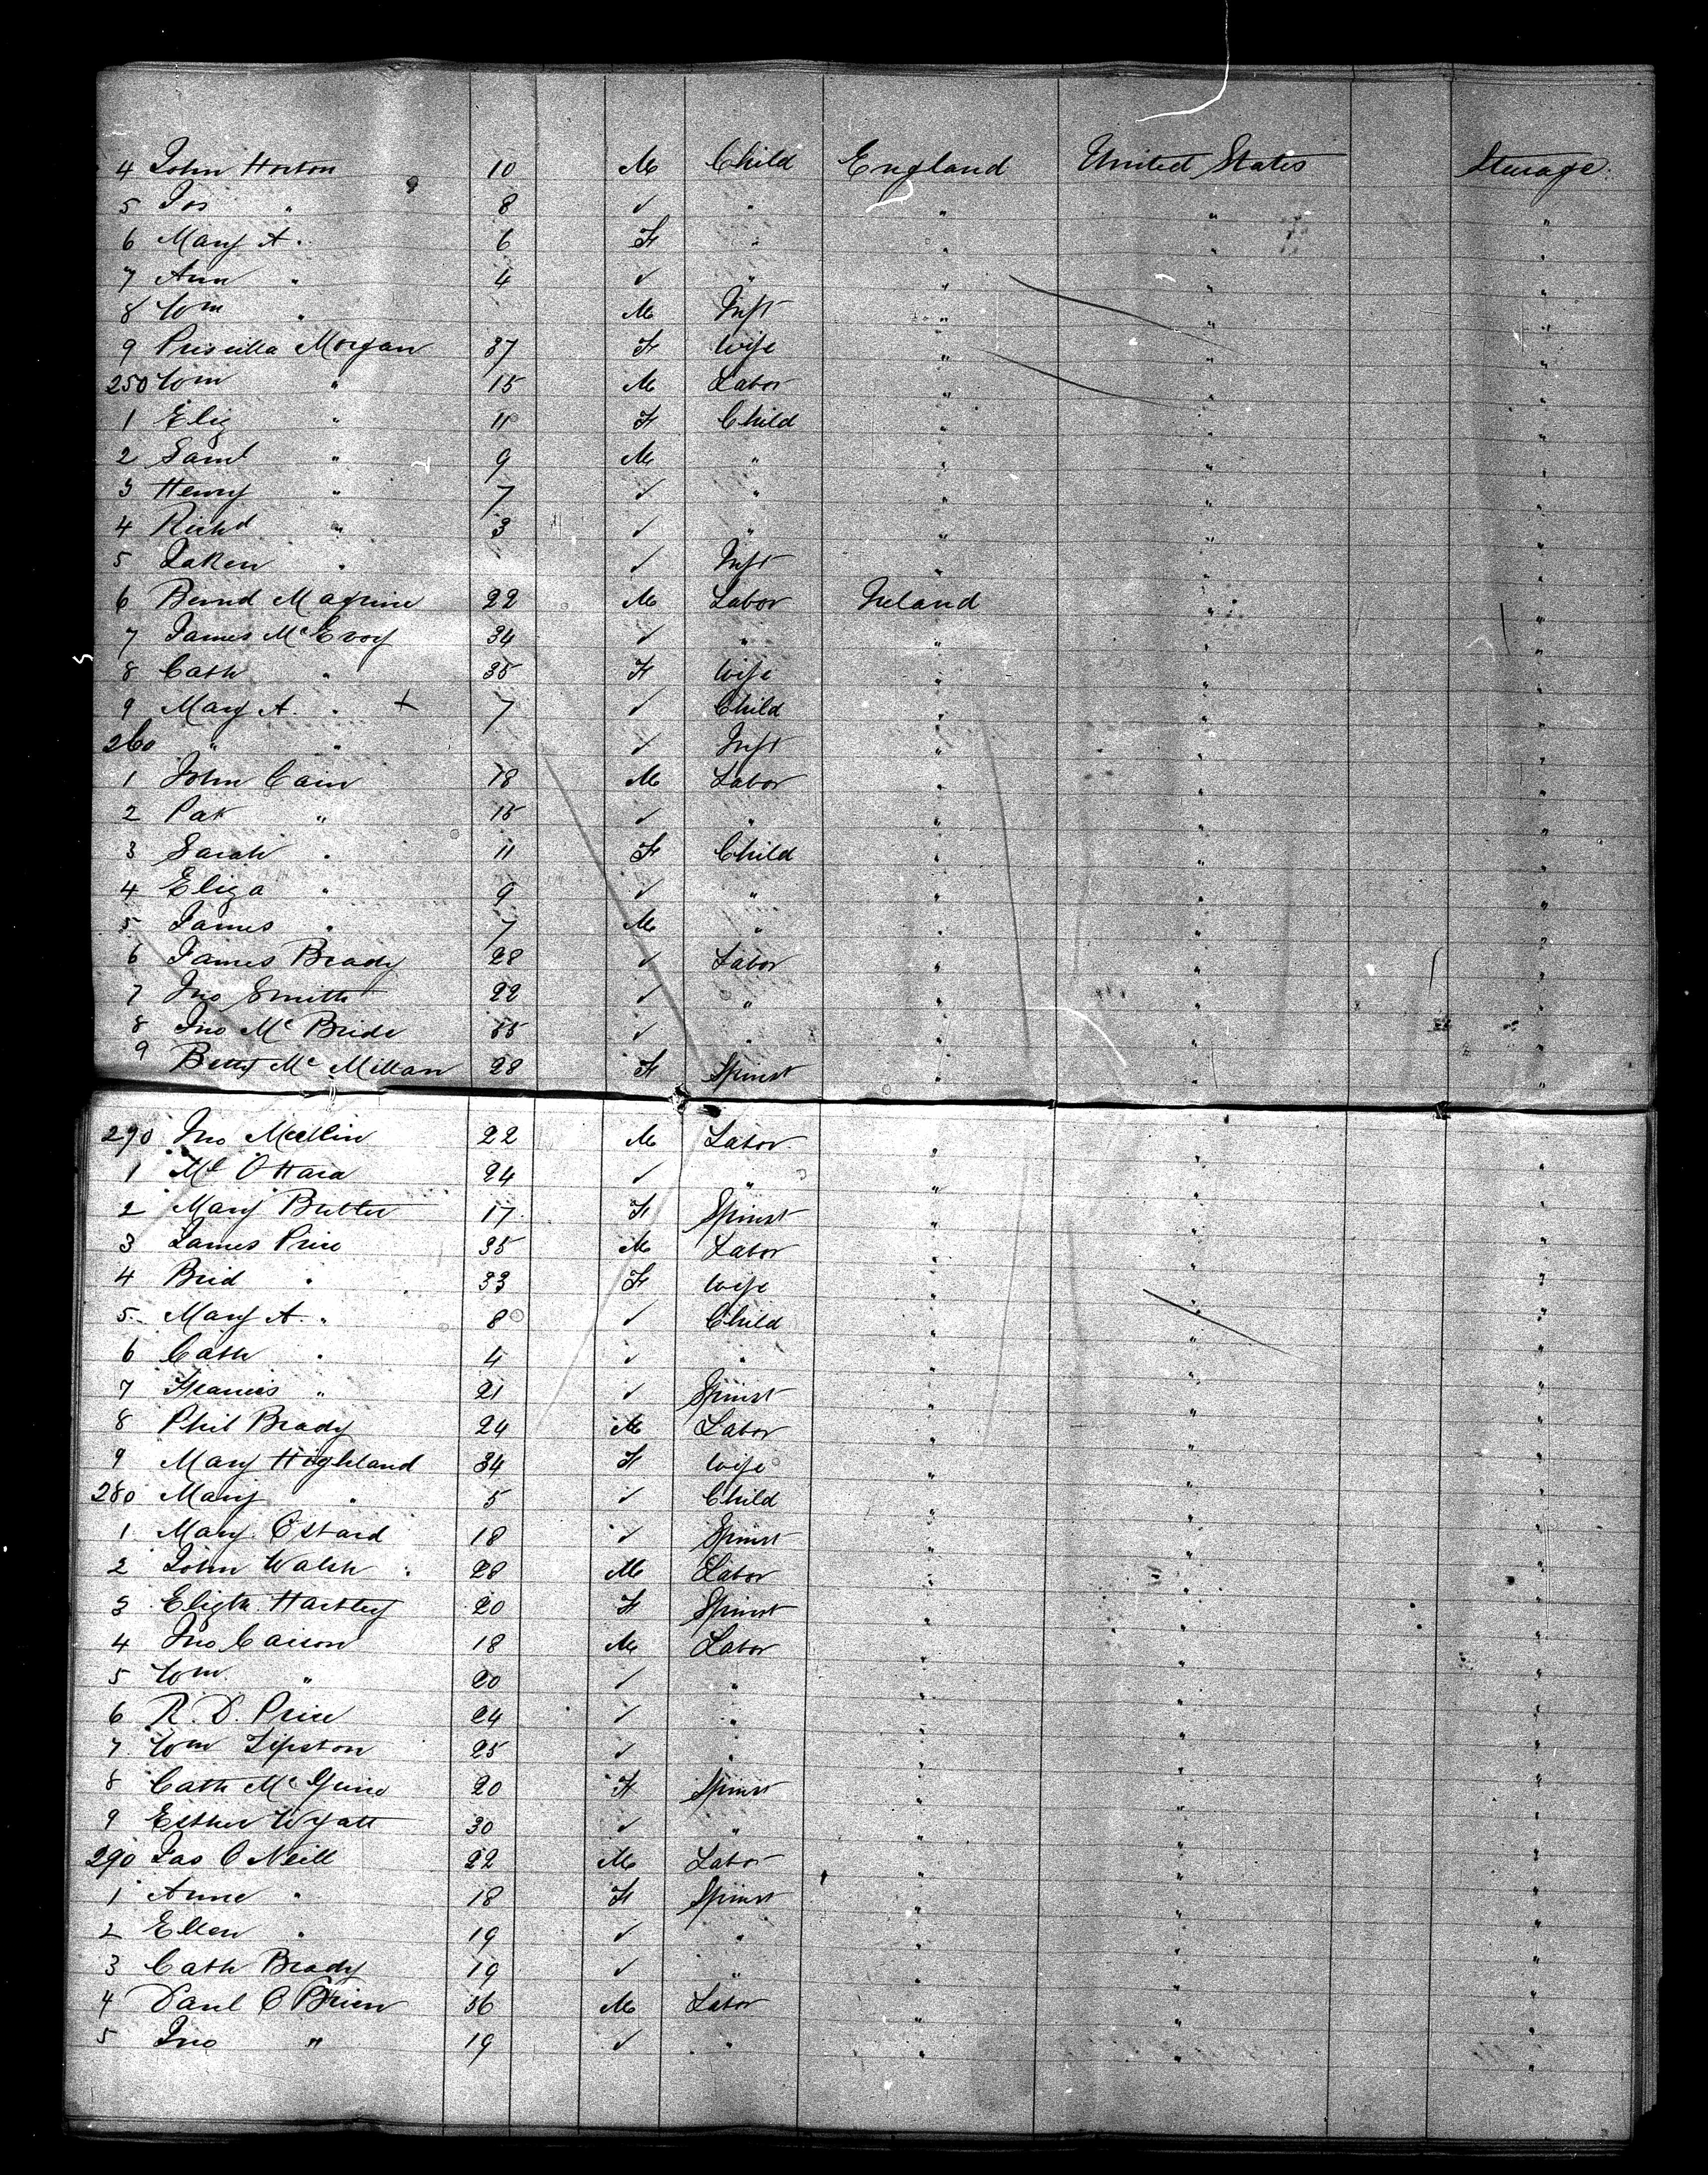 4 John Horton 10 M Child England United States Sterage
5 Jos " 8 ✓ " " " "
6 Mary A. " 6 F " " " "
7 Ann " 4 ✓ " " " "
8 Wm " M Inft " " "
9 Priscilla Morgan 37 F Wife " " "
250 Wm " 15 M Labor " " "
1 Eliz " 11 F Child " " "
2 Saml " 9 M " " " "
3 Henry " 7 ✓ " " " "
4 Richd " 3 ✓ " " " "
5 " ✓ Inft " " "
6 Bernd Maguire 22 M Labor Ireland " "
7 James McEvoy 34 ✓ " " " "
8 Cath " 35 F Wife " " "
9 Mary A. " + 7 ✓ Child " " "
260 " " ✓ Inft " " "
1 John Cain 18 M Labor " " "
2 Pat " 15 ✓ " " " "
3 Sarah " 11 F Child " " "
4 Eliza " 9 ✓ " " " "
5 James " 7 M " " " "
6 James Brady 28 ✓ Labor " " "
7 Jno Smith 22 ✓ " " " "
8 Jno McBride ✓ " " " "
9 Betty McMillan 28 F Spinst " " "
290 Jno 22 M Labor " " "
1 Ml O Hara 24 ✓ " " " "
2 Mary Butler 17 F Spinst " " "
3 James Price 35 M Labor " " "
4 Brid " 33 F Wife " " "
5 Mary A. " 8 ✓ Child " " "
6 Cath " 4 ✓ " " " "
7 Francis " 21 ✓ Spinst " " "
8 Phil Brady 24 M Labor " " "
9 Mary Highland 34 F Wife " " "
280 Mary " 5 ✓ Child " " "
1 Mary 18 ✓ Spinst " " "
2 John Walsh 28 M Labor " " "
3 Elizth Hartley 20 F Spinst " " "
4 Jno Caison 18 M Labor " " "
5 Wm " 20 ✓ " " " "
6 R. D. Price 24 ✓ " " " "
7 Wm Lipston 25 ✓ " " " "
8 Cath McGuire 20 F Spinst " " "
9 Esther Wyatt 30 ✓ " " " "
290 Jas O Neill 22 M Labor " " "
1 Anne " 18 F Spinst " " "
2 Ellen " 19 ✓ " " " "
3 Cath Brady 19 ✓ " " " "
4 Danl O Brien 36 M Labor " " "
5 Jno " 19 ✓ " " " "